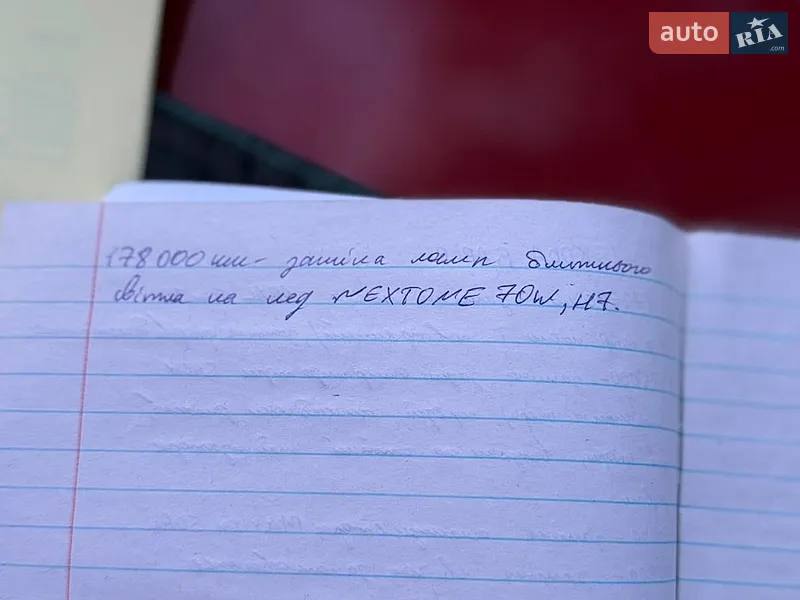 auto RIA .com
178 000 км - заміна ламп ближнього
світла на лед NEXTONE 70W, H7.